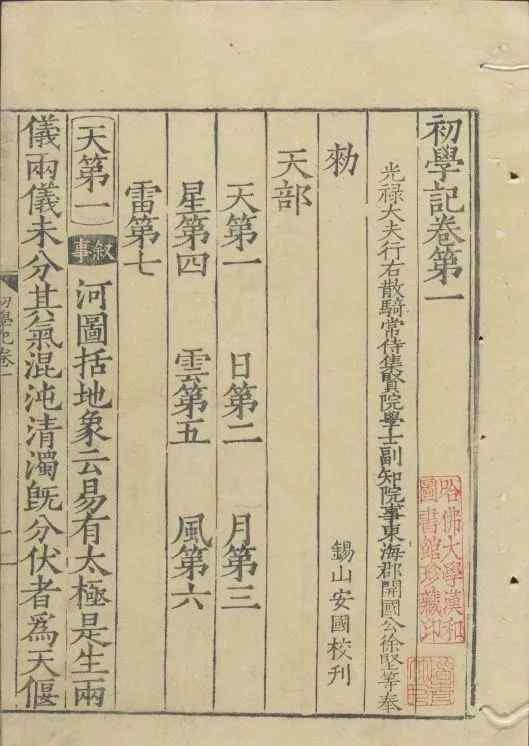 初學記卷第一
光祿大夫行右散騎常侍集賢院學士副知院事東海郡開國公徐堅等奉
勑 錫山安國校刊
天部
天第一 日第二 月第三
星第四 雲第五 風第六
雷第七
天第一 敘事 河圖括地象云易有太極是生兩
儀兩儀未分其氣混沌清濁既分伏者為天偃
初學記卷一
哈佛大學漢和
圖書館珍藏印